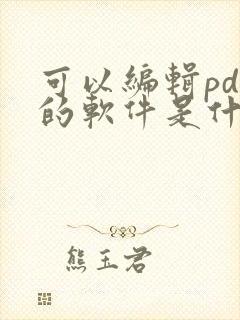 可以編輯pd
的軟件是什
熊玉君